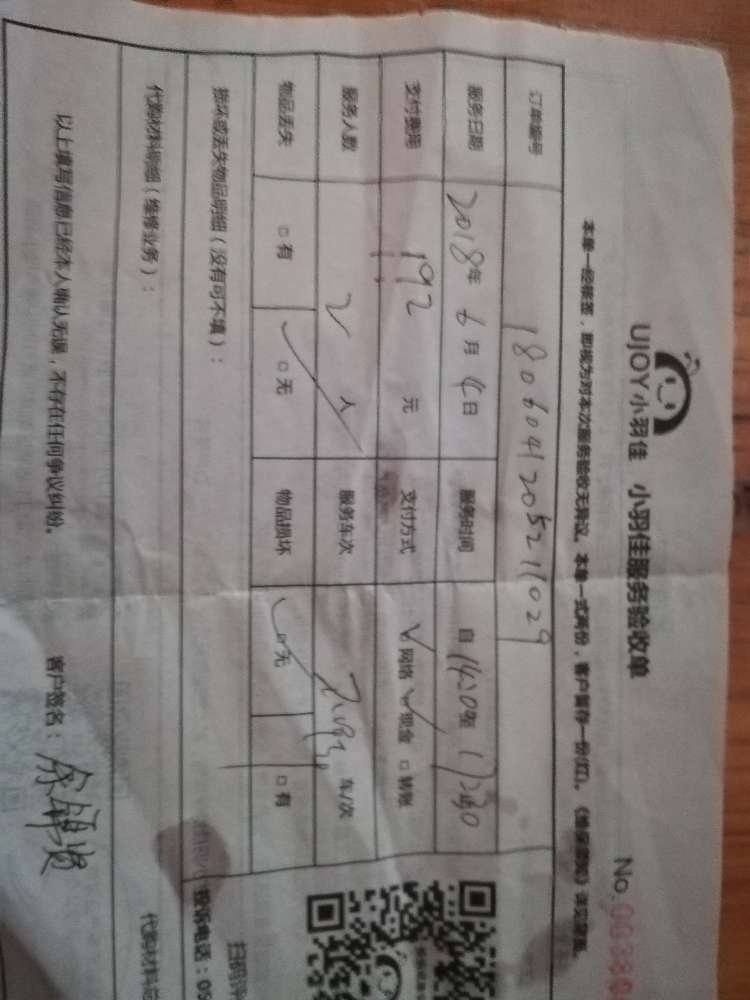 UJOY小羽佳 小羽佳服务验收单
No.00380
本单一经接签，即视为对本次服务验收无异议。本单一式两份，客户留存一份(红)。
订单编号 180604120521029
服务日期 2018年6月4日 服务时间 自
支付费用 192元 支付方式 网络 现金 □ 转账
服务人数 2人 服务车次 车/次
物品丢失 □ 有 □ 无 物品损坏 □ 无 □ 有
损坏或丢失物品明细（没有可不填）：
扫码评
投诉电话：05
代购材料明细（维修业务）：
代购材料总
以上填写信息已经本人确认无误，不存在任何争议纠纷。 客户签名：